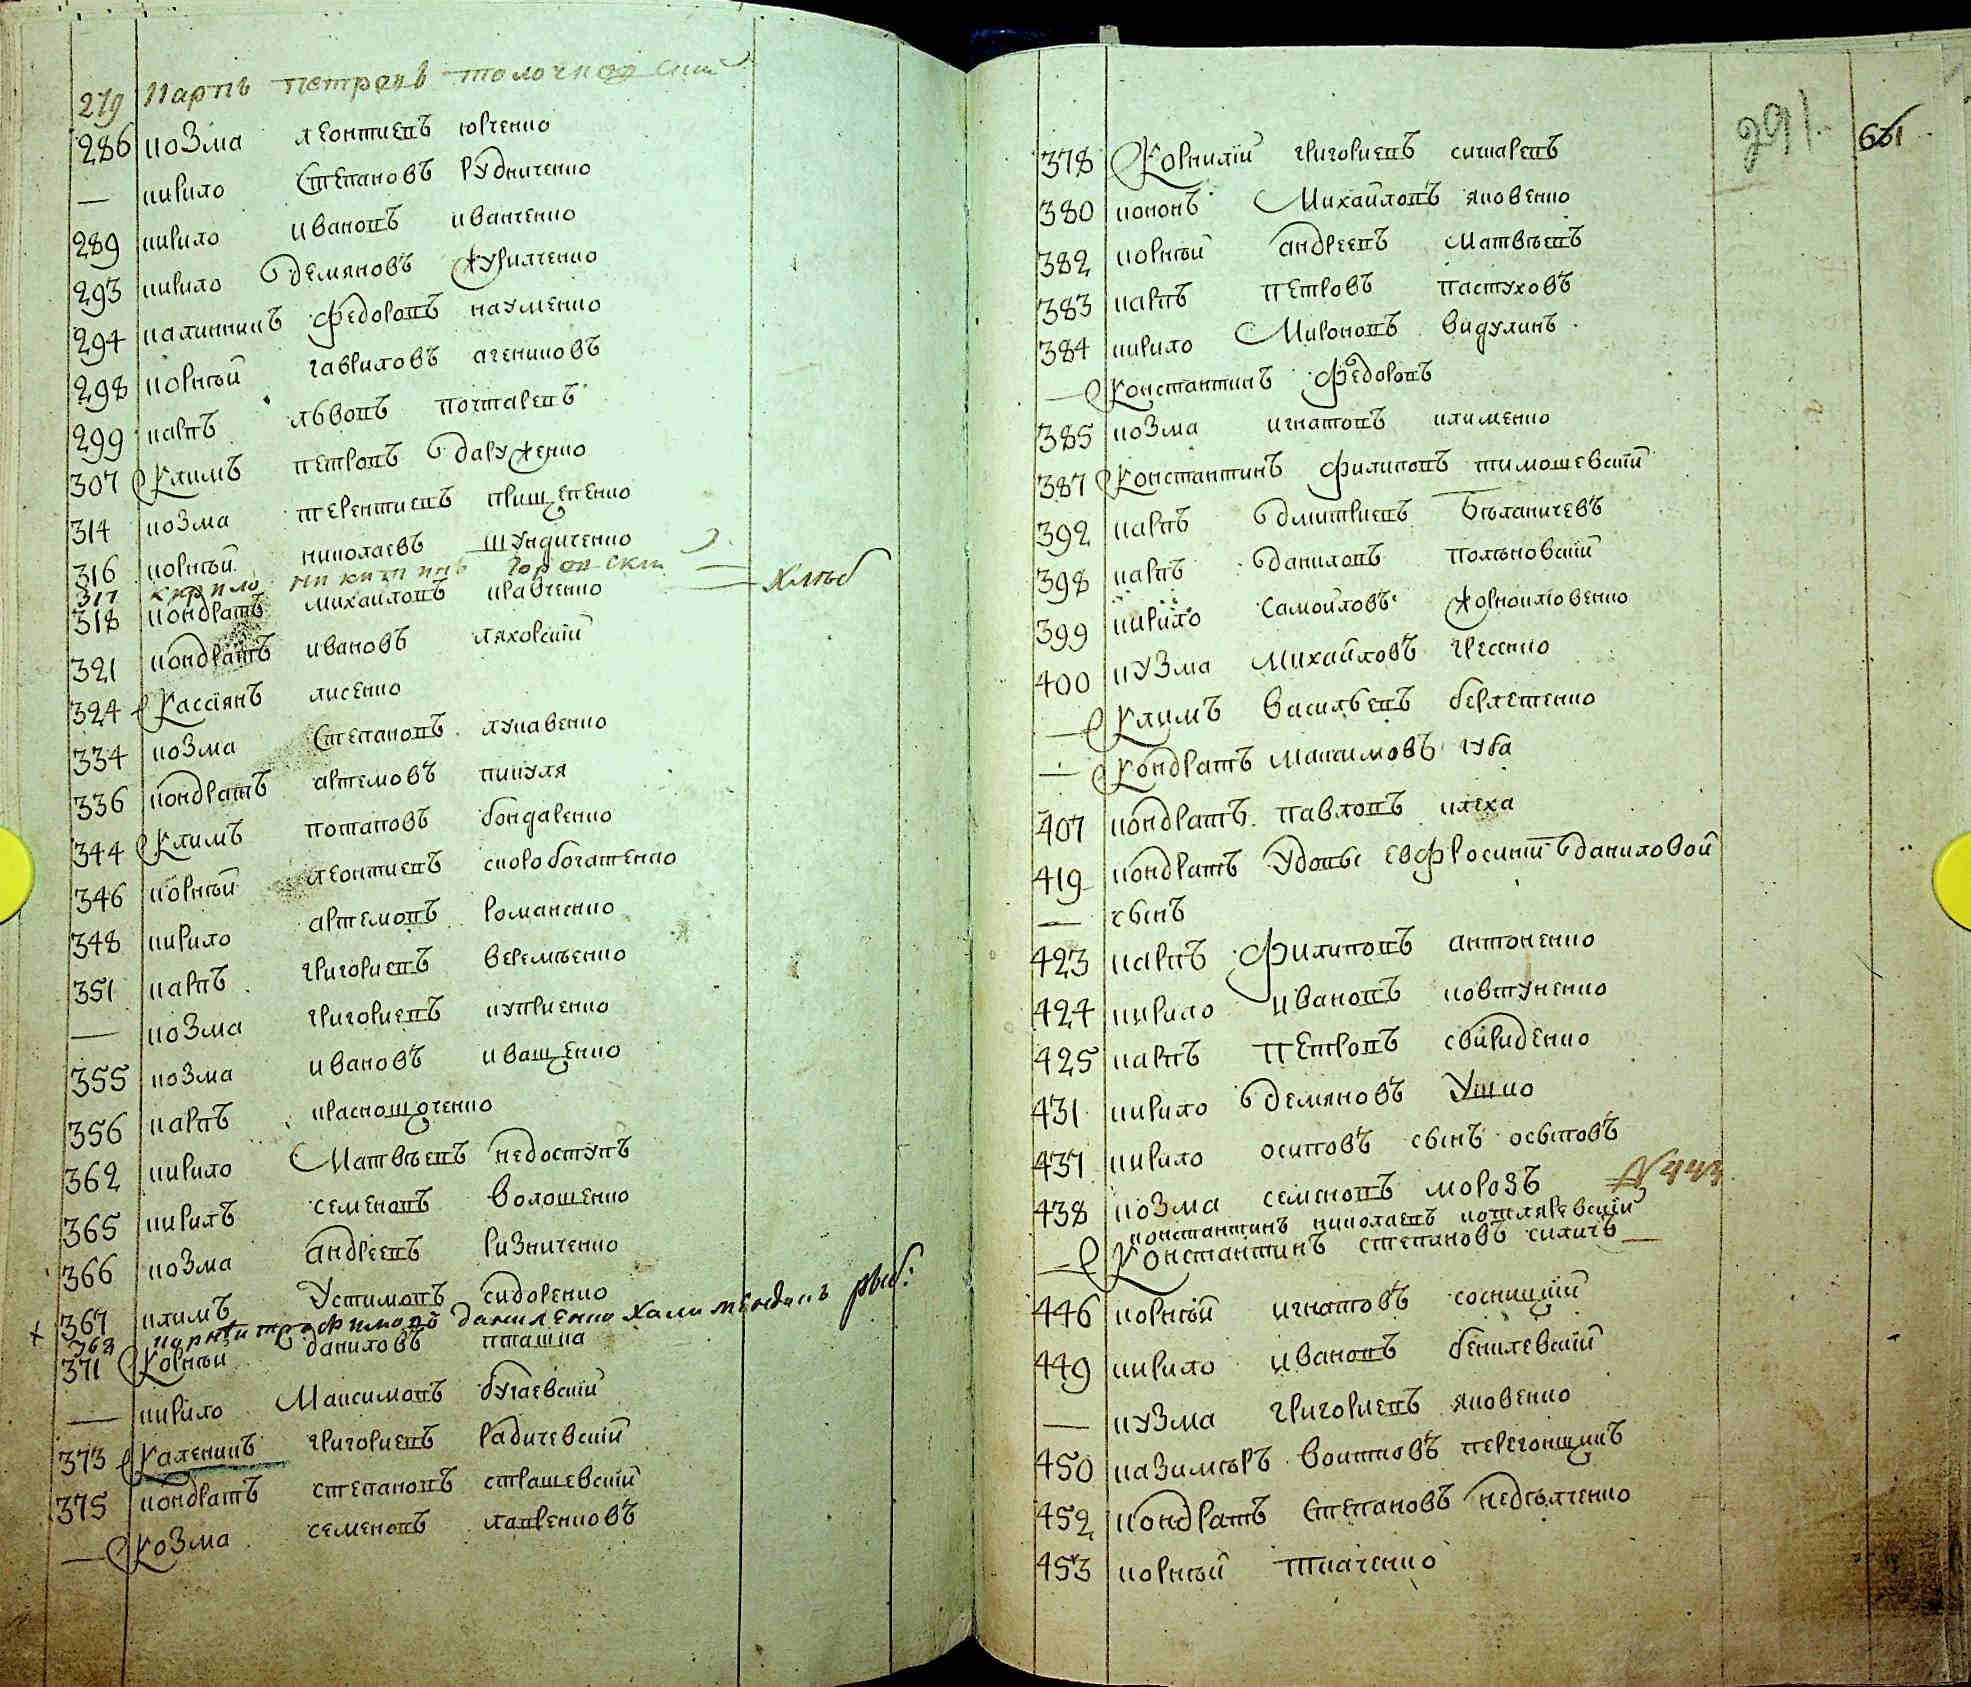 279 Карпъ петровъ толочковский
286 козма леонтиевъ юрченко
— кирило Степановъ рудниченко
289 кирило ивановъ иванченко
293 кирило демяновъ журилченко
294 калинникъ федоровъ науменко
298 корнѣй гавриловъ агениковъ
299 карпъ львовъ почтаревъ
307 Климъ петровъ даруженко
314 козма терентиевъ прищепенко
316 корнѣй николаевъ шундиченко
317 кирило никитинъ
318 кондратъ михаиловъ кравченко
321 кондратъ ивановъ ляховский
324 Кассіянъ лисенко
334 козма Степановъ лукавенко
336 кондратъ артемовъ пикуля
344 Климъ потаповъ бондаренко
346 корнѣй леонтиевъ скоробогатенко
348 кирило артемовъ романенко
351 карпъ григориевъ веремѣенко
— козма григориевъ куприенко
355 козма ивановъ иващенко
356 карпъ краснощоченко
362 кирило Матвѣевъ недоступъ
365 кирилъ семеновъ волошенко
366 козма андреевъ ризниченко
367 климъ Устимовъ сидоренко
368 даниленко
371 Корнѣй даниловъ пташка
— кирило Максимовъ бугаевский
373 Каленикъ григориевъ радичевский
375 кондратъ степановъ страшевский
— Козма семеновъ лавренковъ
291
661
378 Корнилій григориевъ ситаревъ
380 кононъ Михайловъ яковенко
382 корнѣй андреевъ Матвѣевъ
383 карпъ петровъ пастуховъ
384 кирило Мироновъ видулинъ
— Константинъ Федоровъ
385 козма игнатовъ клименко
387 Константинъ филиповъ тимошевскій
392 карпъ дмитриевъ Бѣланичевъ
398 карпъ даниловъ полѣновскій
399 кирило Самойловъ жорноклювенко
400 кузма Михайловъ гресенко
— Климъ васильевъ берлетенко
— Кондратъ максимовъ губа
407 кондратъ павловъ клеха
419 кондратъ удовы евфросинії даниловой
— сынъ
423 карпъ филиповъ антоненко
424 кирило ивановъ ковтуненко
425 карпъ петровъ свириденко
431 кирило демяновъ Ушко
437 кирило осиповъ сынъ осыповъ
438 козма семеновъ морозъ
константинъ николаевъ котляревскій
— Константинъ степановъ силичъ —
446 корнѣй игнатовъ сосницкій
449 кирило ивановъ бенклевскій
— кузма григориевъ яковенко
450 казимѣръ воитковъ перегонщикъ
452 кондратъ Степановъ недѣлченко
453 корнѣй ткаченко